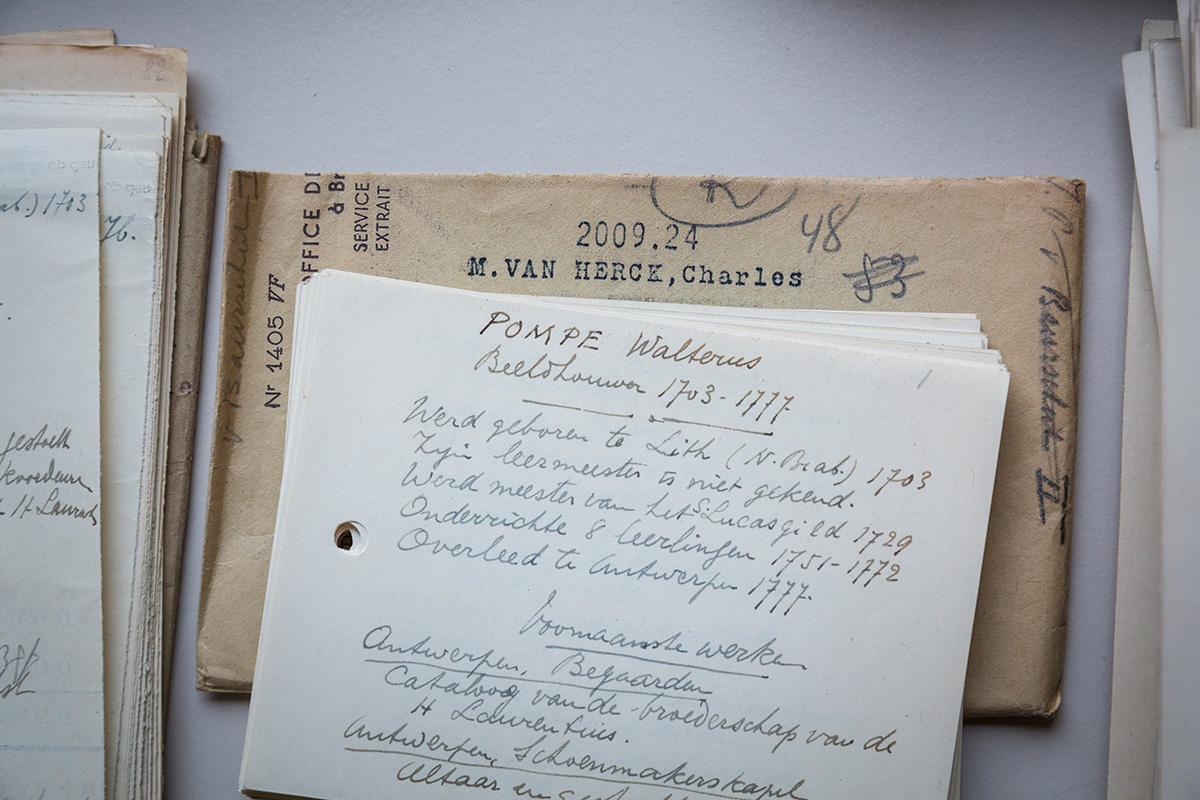 82
ab.) 1703
76.
gestoelt
H Laurent
OFFICE DE
à Br
SERVICE
EXTRAIT
Nr 1405 VF
R
48
2009.24
M.VAN HERCK,Charles
53
II
POMPE Walterus
1
Beeldhouwer 1703-1777
Werd geboren te Lith (N. Brab.) 1703
Zijn leermeester is niet gekend.
Werd meester van het St Lucasgild 1729
Onderrichte 8 leerlingen 1751-1772
Overleed te Antwerpen 1777.
Voornaamste werken
Antwerpen, Begaarden
Cataloog van de broederschap van de
H Laurentius.
Antwerpen, Schoenmakerskapel
Altaar en